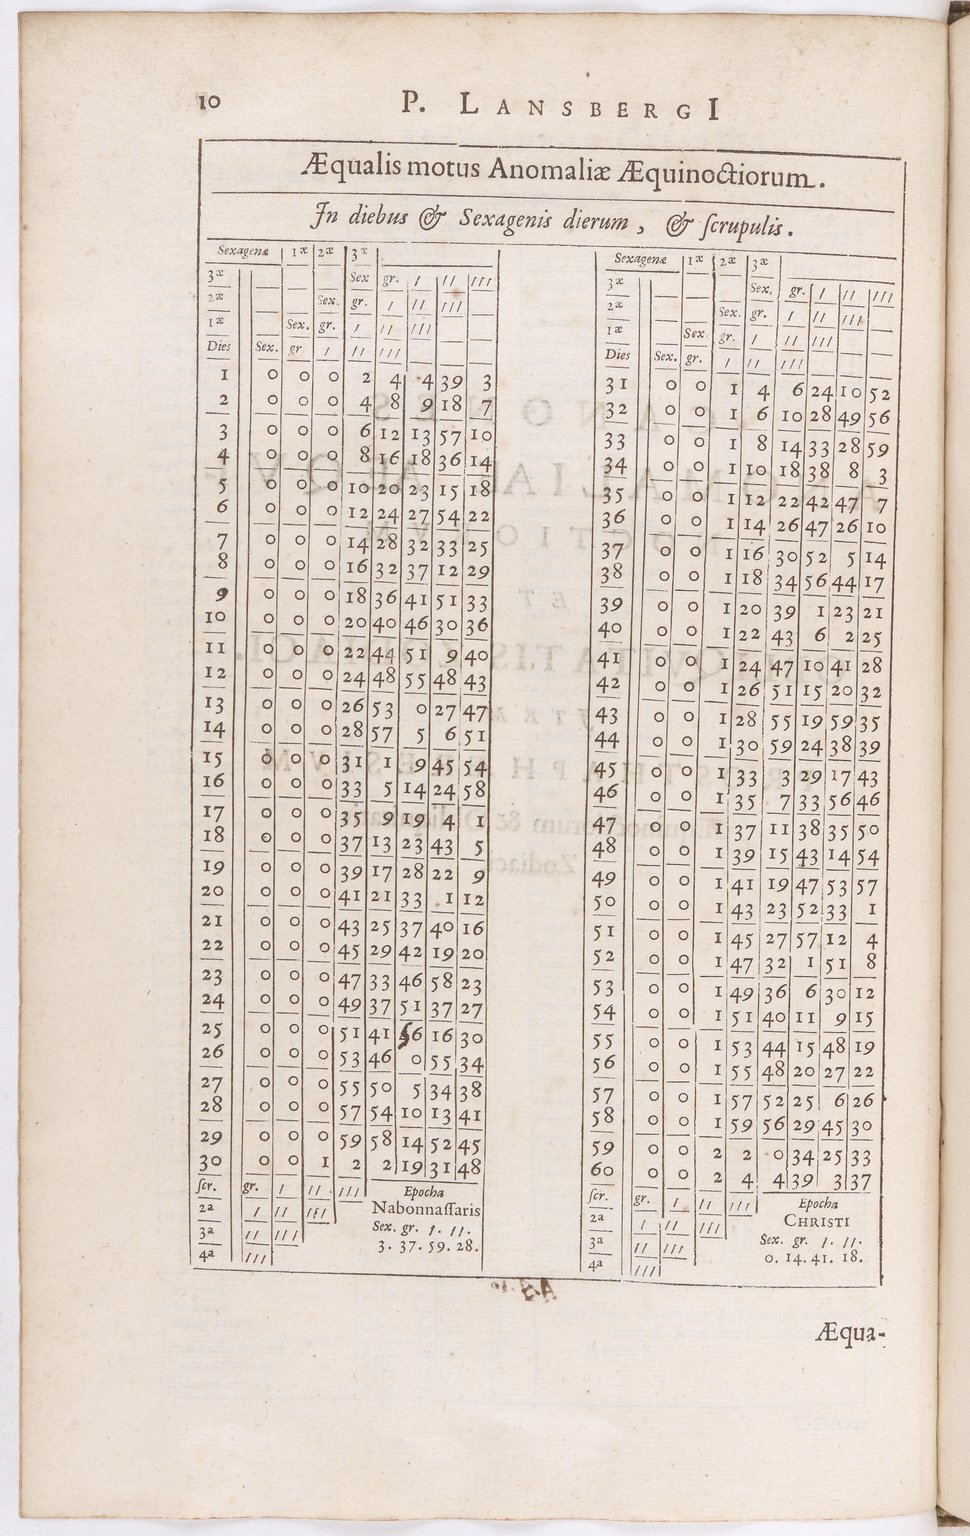 10
P. LANSBERGI
Æqualis motus Anomaliæ Æquinoctiorum.
In diebus & Sexagenis dierum, & ſcrupulis.
Sexagenæ 1æ 2æ 3æ
3æ Sex gr. / // ///
2æ Sex. gr. / // ///
1æ Sex. gr. / // ///
Dies Sex. gr / // ///
1 0 0 0 2 4 4 39 3
2 0 0 0 4 8 9 18 7
3 0 0 0 6 12 13 57 10
4 0 0 0 8 16 18 36 14
5 0 0 0 10 20 23 15 18
6 0 0 0 12 24 27 54 22
7 0 0 0 14 28 32 33 25
8 0 0 0 16 32 37 12 29
9 0 0 0 18 36 41 51 33
10 0 0 0 20 40 46 30 36
11 0 0 0 22 44 51 9 40
12 0 0 0 24 48 55 48 43
13 0 0 0 26 53 0 27 47
14 0 0 0 28 57 5 6 51
15 0 0 0 31 1 9 45 54
16 0 0 0 33 5 14 24 58
17 0 0 0 35 9 19 4 1
18 0 0 0 37 13 23 43 5
19 0 0 0 39 17 28 22 9
20 0 0 0 41 21 33 1 12
21 0 0 0 43 25 37 40 16
22 0 0 0 45 29 42 19 20
23 0 0 0 47 33 46 58 23
24 0 0 0 49 37 51 37 27
25 0 0 0 51 41 56 16 30
26 0 0 0 53 46 0 55 34
27 0 0 0 55 50 5 34 38
28 0 0 0 57 54 10 13 41
29 0 0 0 59 58 14 52 45
30 0 0 1 2 2 19 31 48
ſcr. gr. / // /// Epocha
2a / // /// Nabonnaſſaris
3a // /// Sex. gr. /. //.
4a /// 3. 37. 59. 28.
Sexagenæ 1æ 2æ 3æ
3æ Sex. gr. / // ///
2æ Sex. gr. / // ///
1æ Sex gr. / // ///
Dies Sex. gr. / // ///
31 0 0 1 4 6 24 10 52
32 0 0 1 6 10 28 49 56
33 0 0 1 8 14 33 28 59
34 0 0 1 10 18 38 8 3
35 0 0 1 12 22 42 47 7
36 0 0 1 14 26 47 26 10
37 0 0 1 16 30 52 5 14
38 0 0 1 18 34 56 44 17
39 0 0 1 20 39 1 23 21
40 0 0 1 22 43 6 2 25
41 0 0 1 24 47 10 41 28
42 0 0 1 26 51 15 20 32
43 0 0 1 28 55 19 59 35
44 0 0 1 30 59 24 38 39
45 0 0 1 33 3 29 17 43
46 0 0 1 35 7 33 56 46
47 0 0 1 37 11 38 35 50
48 0 0 1 39 15 43 14 54
49 0 0 1 41 19 47 53 57
50 0 0 1 43 23 52 33 1
51 0 0 1 45 27 57 12 4
52 0 0 1 47 32 1 51 8
53 0 0 1 49 36 6 30 12
54 0 0 1 51 40 11 9 15
55 0 0 1 53 44 15 48 19
56 0 0 1 55 48 20 27 22
57 0 0 1 57 52 25 6 26
58 0 0 1 59 56 29 45 30
59 0 0 2 2 0 34 25 33
60 0 0 2 4 4 39 3 37
ſcr. gr. / // /// Epocha
2a / // /// CHRISTI
3a // /// Sex. gr. /. //.
4a /// 0. 14. 41. 18.
Æqua-